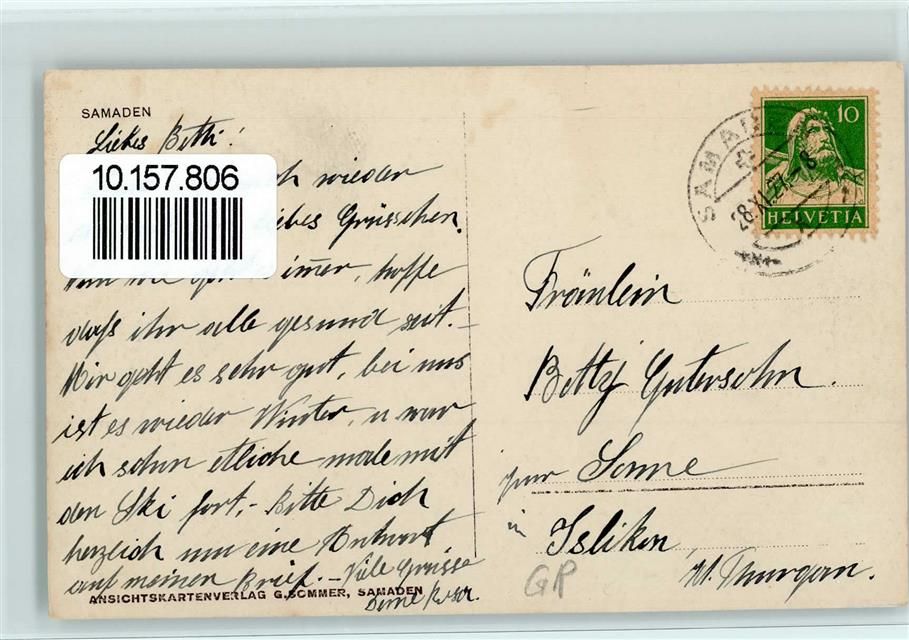 SAMADEN
Liebes Betti!
10.157.806
wieder
liebes Grüsschen.
immer, hoffe
dass ihr alle gesund seit. –
Mir geht es sehr gut, bei uns
ist es wieder Winter, u war
ich schon etliche male mit
den Ski fort, – Bitte Dich
herzlich um eine Antwort
auf meinen Brief. – Viele Grüsse
Deine
ANSICHTSKARTENVERLAG G. SOMMER, SAMADEN
10
HELVETIA
SAMADEN
28.XI.27.-8
Fräulein
Betty Gutersohn.
zur Sonne
in Islikon
Kt. Thurgau.
GP